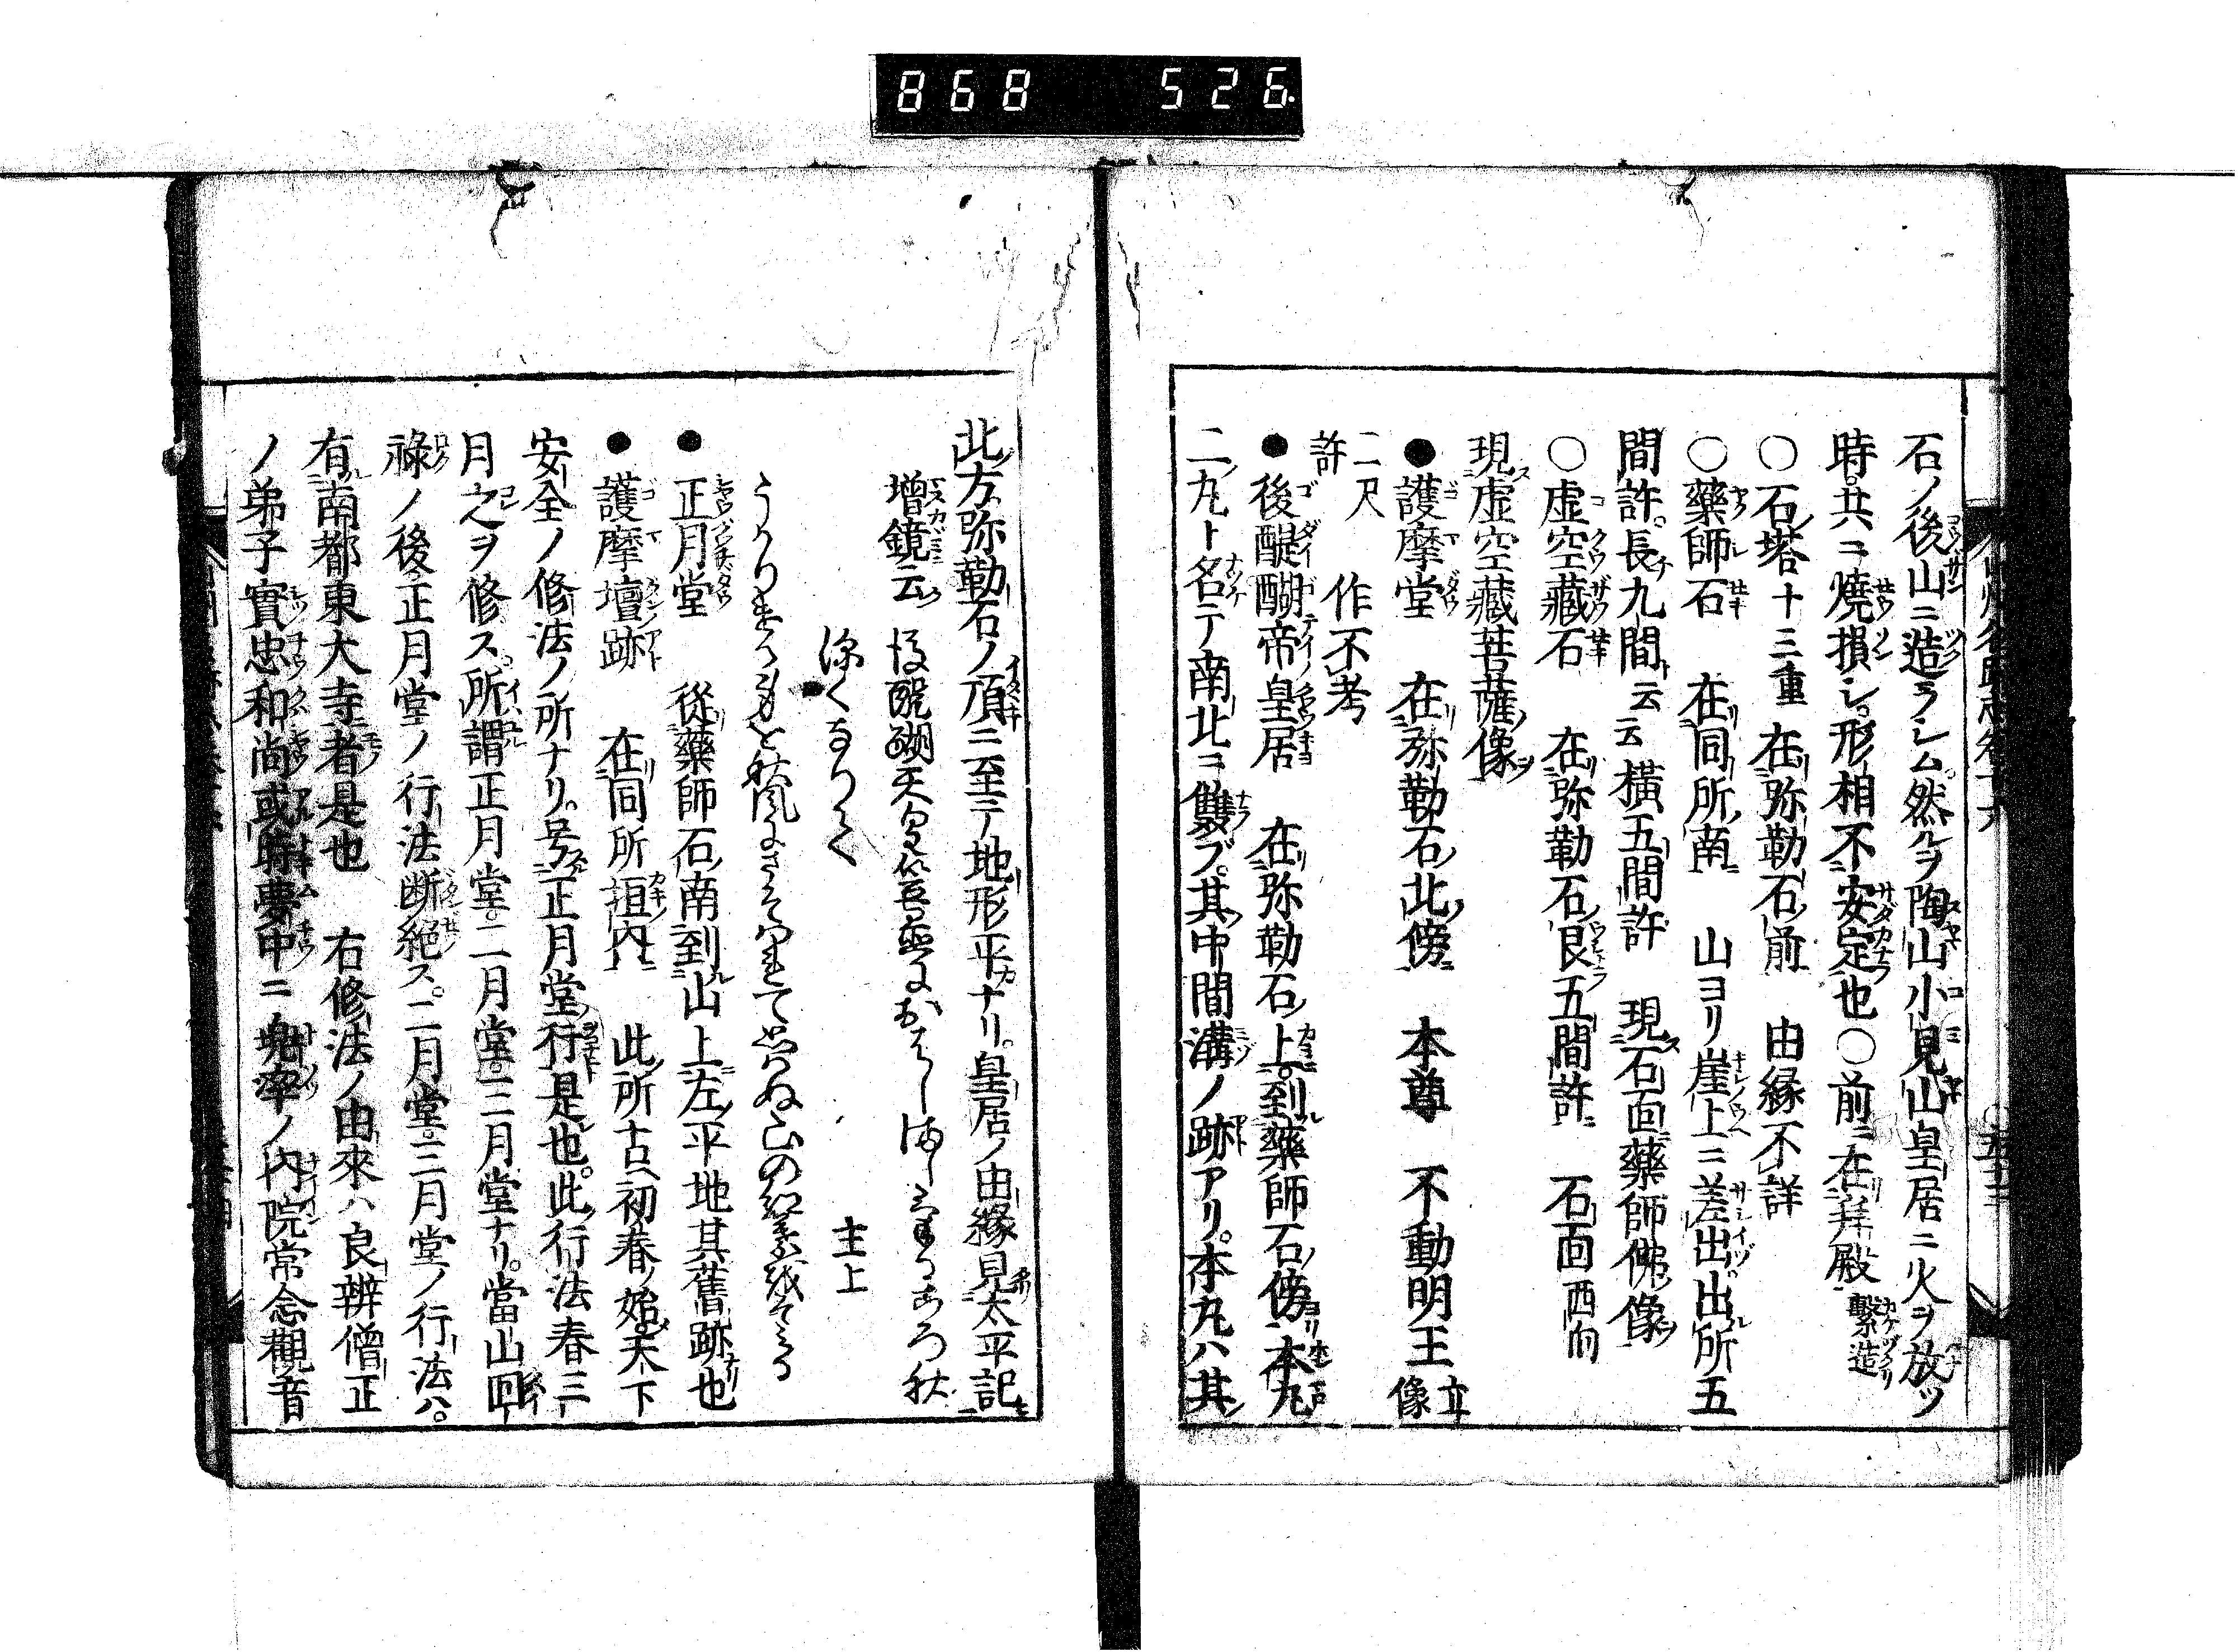 868 526
石ノ後山ニ造ラシム。然ルヲ陶山小見山皇居ニ火ヲ放ツ
時。共ニ燒損シ。形相不安定也〇前ニ在拜殿 繫造
〇石塔十三重 在弥勒石前 由縁不詳
〇藥師石 在同所南 山ヨリ崖上ニ差出出所五
間許。長九間云云橫五間許 現石面藥師佛像
〇虚空藏石 在弥勒石艮五間許 石面西向
現虚空藏菩薩像
●護摩堂 在弥勒石北傍 本尊 不動明王 立像
二尺許 作不考
●後醍醐帝皇居 在弥勒石上。到藥師石傍 本丸
二丸ト名テ南北ニ雙ブ。其中間溝ノ跡アリ。本丸ハ其
此方弥勒石ノ頂ニ至テ地形平ナリ。皇居ノ由縁見太平記
增鏡云 後醍醐天皇笠置におはしましけるころ秋
深くなりて 主上
うかりける身を秋風にさそはれて思はぬ山の紅葉をそみる
●正月堂 從藥師石南到山上左平地其舊跡也
●護摩壇跡 在同所垣内 此所古ヘ初春ノ始。天下
安全ノ修法ノ所ナリ。号正月堂行是也。此行法春三
月之ヲ修ス。所謂正月堂。二月堂。三月堂ナリ。當山回
祿ノ後。正月堂ノ行法断絶ス。二月堂。三月堂ノ行法ハ。
有南都東大寺者是也 右修法ノ由來ハ良辨僧正
ノ弟子實忠和尚或時夢中ニ兜率ノ内院常念觀音